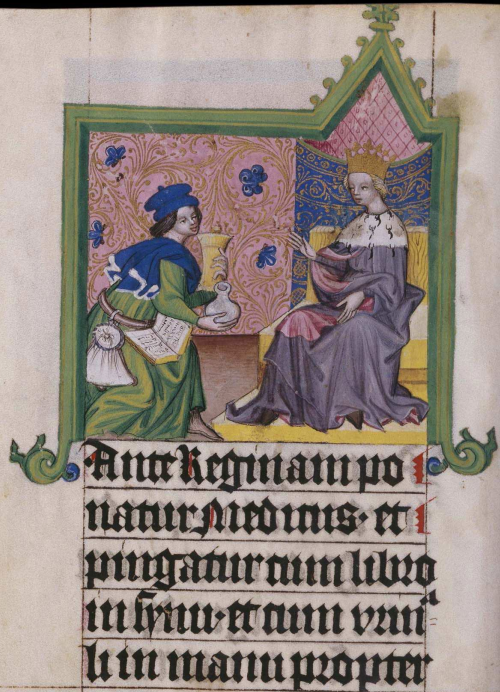 Ante Reginam po
natur Medicus· et
pingatur cum libro
in synu· et cum vrina
li in manu propter